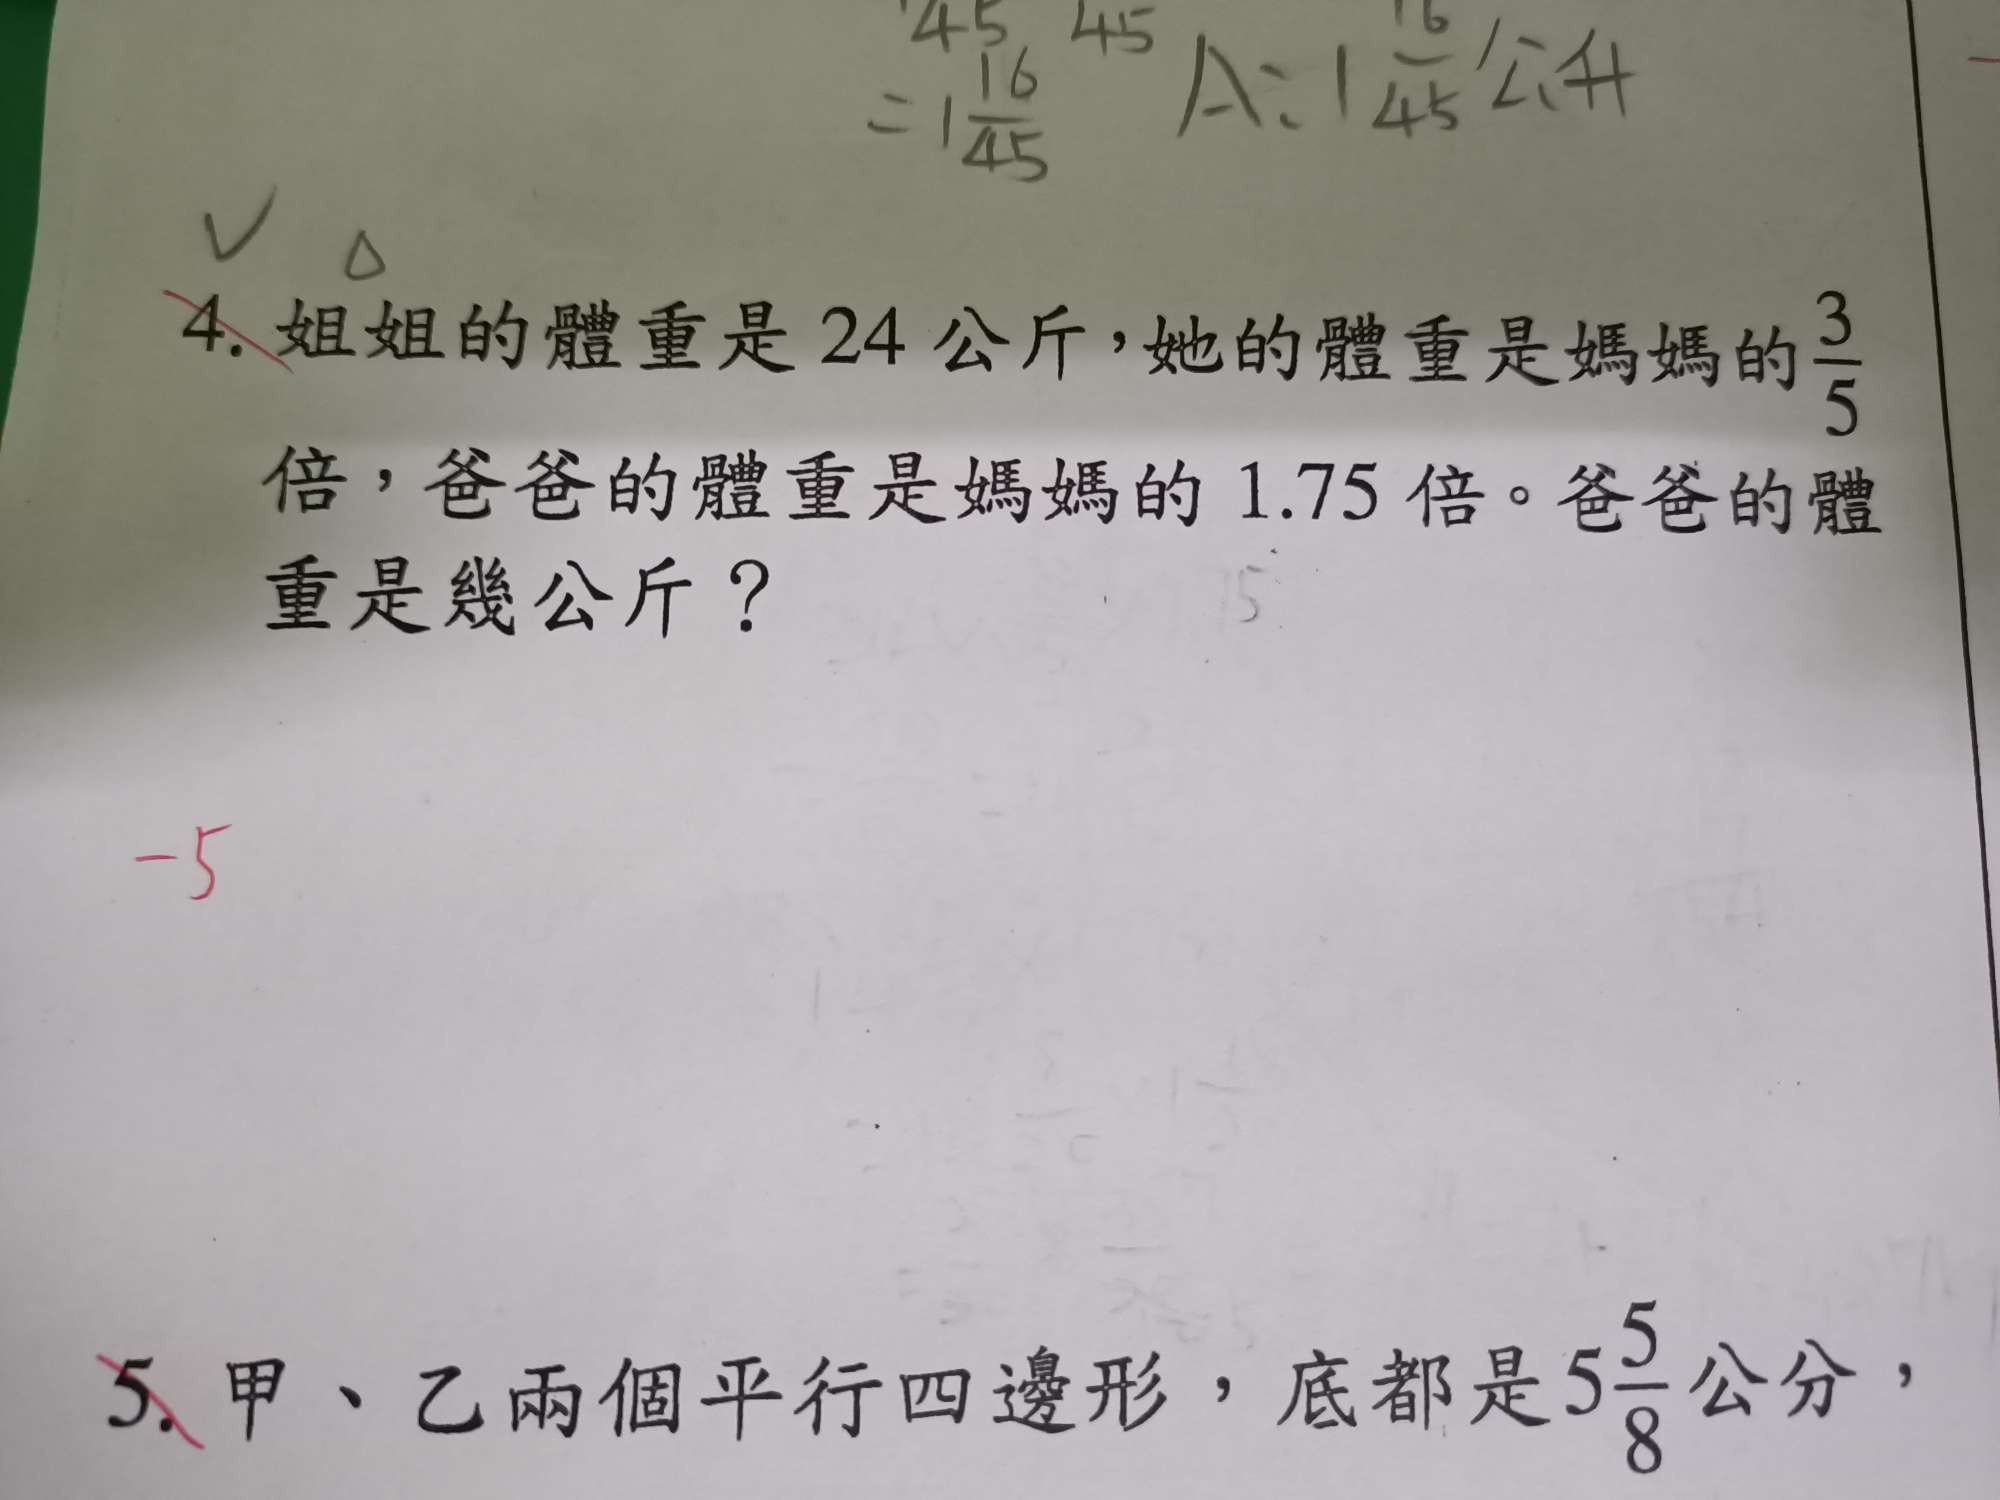 45 45
=1 16/45 A:1 16/45 公升
4. 姐姐的體重是 24 公斤,她的體重是媽媽的 3/5
倍,爸爸的體重是媽媽的 1.75 倍。爸爸的體
重是幾公斤?
-5
5. 甲、乙兩個平行四邊形,底都是 5 5/8 公分,